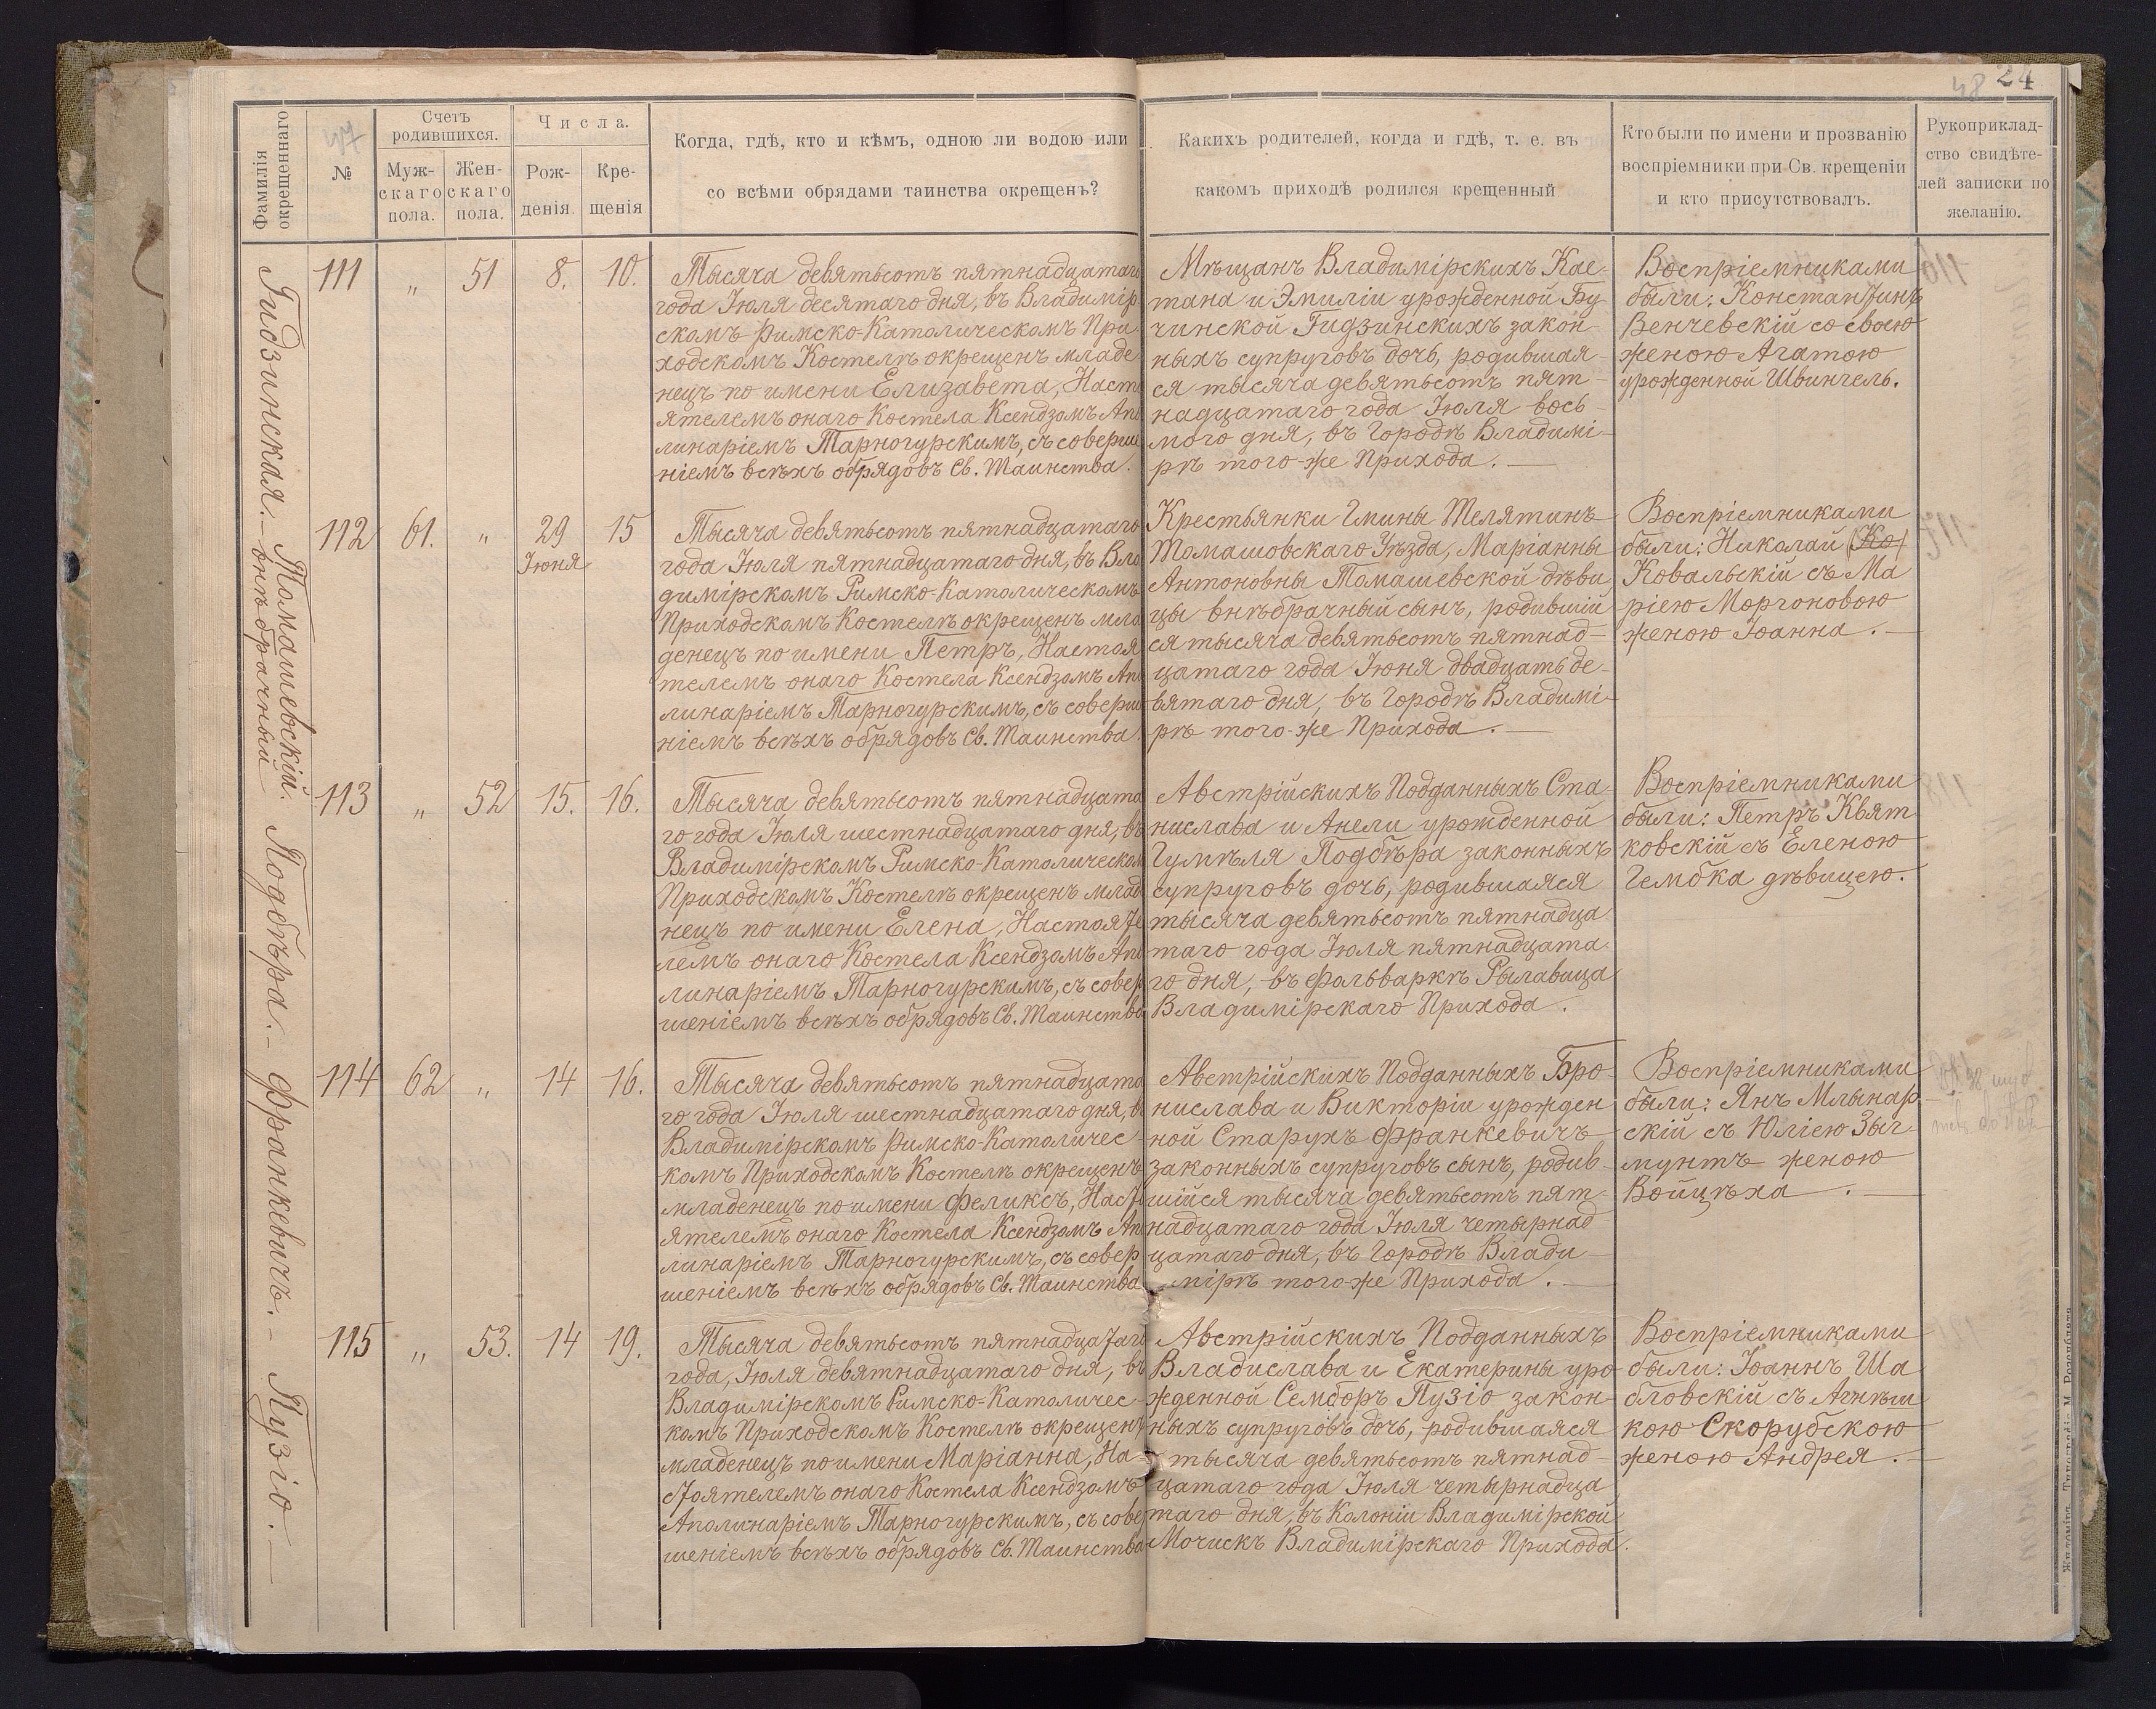 48 24
Фамилія окрещеннаго
47
№
Счетъ родившихся.
Муж-скаго пола.
Жен-скаго пола.
Числа.
Рож-денія.
Кре-щенія
Когда, гдѣ, кто и кѣмъ, одною ли водою или
со всѣми обрядами таинства окрещенъ?
Какихъ родителей, когда и гдѣ, т. е. въ
какомъ приходѣ родился крещенный
Кто были по имени и прозванію
воспріемники при Св. крещеніи
и кто присутствовалъ.
Рукоприклад-
ство свидѣте-
лей записки по
желанію.
Гидзинская.
111 „ 51 8. 10.
Тысяча девятьсотъ пятнадцатаго
года Іюля десятаго дня, въ Владимір
скомъ Римско-Католическомъ При-
ходскомъ Костелѣ окрещенъ младе
нецъ по имени Елизавета, Насто
ятелемъ онаго Костела Ксендзомъ Апо
линаріемъ Тарногурскимъ, съ соверше
ніемъ всѣхъ обрядовъ Св. Таинства.
Мѣщанъ Владимірскихъ Кае-
тана и Эмиліи урожденной Бу
чинской Гидзинскихъ закон-
ныхъ супруговъ дочь, родившая-
ся тысяча девятьсотъ пят-
надцатаго года Іюля вось-
мого дня, въ Городѣ Владимі-
рѣ того-же Прихода.
Воспріемниками
были: Константинъ
Венчевскій со своею
женою Агатою
урожденной Швингель.
Томашевскій.
внѣбрачный
112 61. „ 29 Іюня 15
Тысяча девятьсотъ пятнадцатаго
года Іюля пятнадцатаго дня, въ Вла
димірскомъ Римско-Католическомъ
Приходскомъ Костелѣ окрещенъ мла
денецъ по имени Петръ, Настоя
телемъ онаго Костела Ксендзомъ Апо
линаріемъ Тарногурскимъ, съ соверше
ніемъ всѣхъ обрядовъ Св. Таинства
Крестьянки Гмины Телятинъ
Томашовскаго Уѣзда, Маріанны
Антоновны Томашевской дѣви
цы внѣбрачный сынъ, родившій
ся тысяча девятьсотъ пятнад-
цатаго года Іюня двадцать де-
вятаго дня, въ Городѣ Владимі-
рѣ того-же Прихода.
Воспріемниками
были: Николай (Ко)
Ковальскій съ Ма
ріею Моргоновою
женою Іоанна.
Подбѣра.
113 „ 52 15. 16.
Тысяча девятьсотъ пятнадцата
го года Іюля шестнадцатаго дня, въ
Владимірскомъ Римско-Католическом
Приходскомъ Костелѣ окрещенъ млад
нецъ по имени Елена, Настояте
лемъ онаго Костела Ксендзомъ Апо
линаріемъ Тарногурскимъ, съ совер
шеніемъ всѣхъ обрядовъ Св. Таинства
Австрійскихъ Подданныхъ Ста-
нислава и Анели урожденной
Гумѣля Подбѣра законныхъ
супруговъ дочь, родившаяся
тысяча девятьсотъ пятнадца
таго года Іюля пятнадцата
го дня, въ Фольваркѣ Рылавица
Владимірскаго Прихода.
Воспріемниками
были: Петръ Квят
ковскій съ Еленою
Гембка дѣвицею.
Франкевичъ.
114 62 „ 14 16.
Тысяча девятьсотъ пятнадцата
го года Іюля шестнадцатаго дня, въ
Владимірскомъ Римско-Католичес-
комъ Приходскомъ Костелѣ окрещенъ
младенецъ по имени Феликсъ, Насто
ятелемъ онаго Костела Ксендзомъ Апо
линаріемъ Тарногурскимъ, съ совер
шеніемъ всѣхъ обрядовъ Св. Таинства
Австрійскихъ Подданныхъ Бро-
нислава и Викторіи урожден
ной Старухъ Франкевичъ
законныхъ супруговъ сынъ, родив-
шійся тысяча девятьсотъ пят-
надцатаго года Іюля четырнад-
цатаго дня, въ Городѣ Влади-
мірѣ того-же Прихода.
Воспріемниками
были: Янъ Млынар-
скій съ Юліею Зыг-
мунтъ женою
Войцѣха.
Пузіо.
115 „ 53. 14 19.
Тысяча девятьсотъ пятнадцатаго
года, Іюля девятнадцатаго дня, въ
Владимірскомъ Римско-Католичес-
комъ Приходскомъ Костелѣ окрещенъ
младенецъ по имени Маріанна, На-
стоятелемъ онаго Костела Ксендзомъ
Аполинаріемъ Тарногурскимъ, съ совер
шеніемъ всѣхъ обрядовъ Св. Таинства
Австрійскихъ Подданныхъ
Владислава и Екатерины уро
жденной Семборъ Пузіо закон-
ныхъ супруговъ дочь, родившаяся
тысяча девятьсотъ пятнад-
цатаго года Іюля четырнадца
таго дня, въ Колоніи Владимірской
Мочискъ Владимірскаго Прихода.
Воспріемниками
были: Іоаннъ Ша
бловскій съ Агнѣш
кою Скорубскою
женою Андрея.